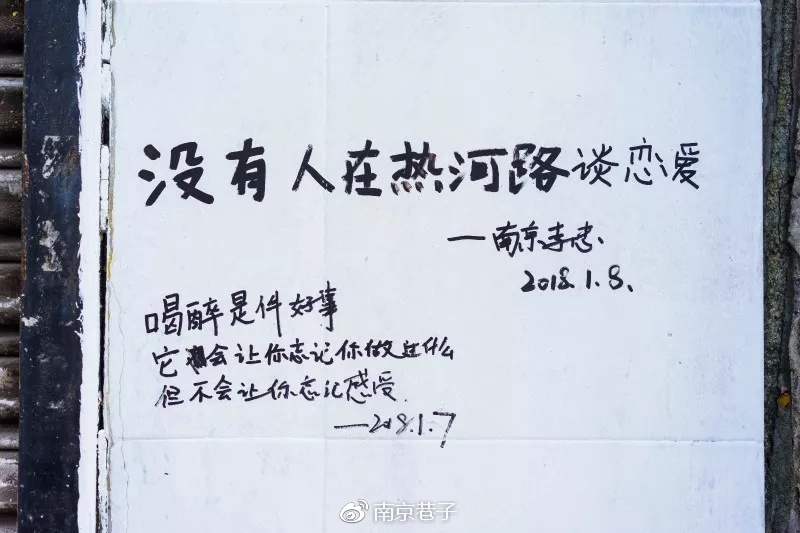 没有人在热河路谈恋爱
—南京李志
2018.1.8.
喝醉是件好事
它会让你忘记你做过什么
但不会让你忘记感受.
—2018.1.7
南京巷子